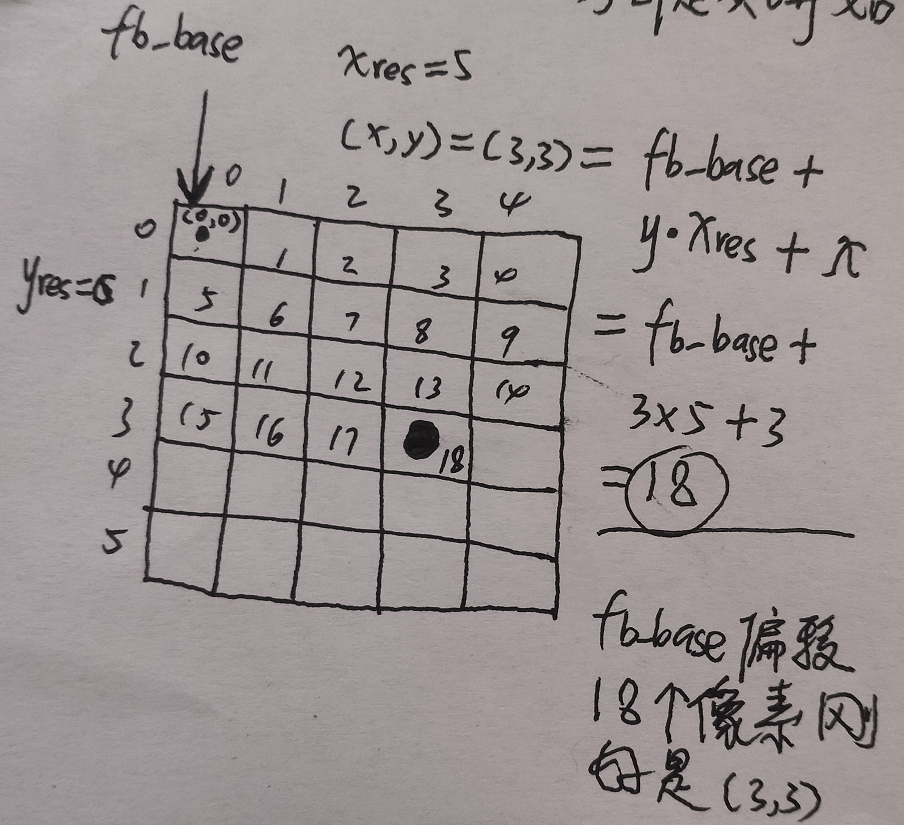 fb_base
xres=5
(x,y)=(3,3)= fb_base +
y·xres + x
= fb_base +
3×5+3
=18
0 1 2 3 4
0 (0,0) 1 2 3 4
yres=6
1 5 6 7 8 9
2 10 11 12 13 14
3 15 16 17 18
4
5
fb_base偏移
18个像素刚
好是(3,3)